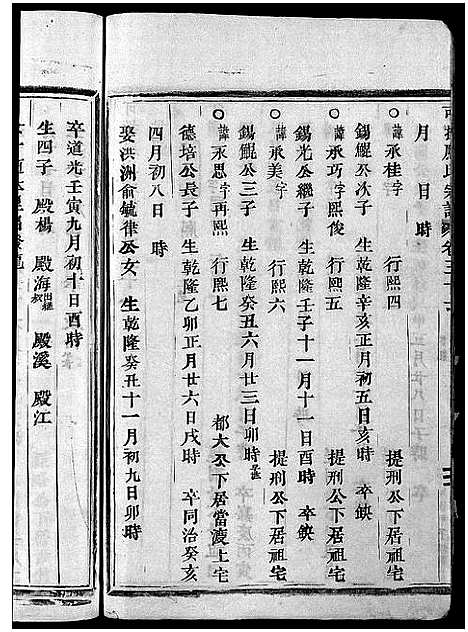 月 日 時
○諱承桂字 行熙四 提刑公下居祖宅
錫鯤公次子 生乾隆辛亥正月初五日亥時 卒缺
○諱承巧字熙俊 行熙五 提刑公下居祖宅
錫光公繼子 生乾隆壬子十一月十一日酉時 卒缺
○諱承美字 行熙六 提刑公下居祖宅
錫鯤公三子 生乾隆癸丑六月廿三日卯時
○諱永恩字再熙 行熙七 都大公下居當濅上宅
德培公長子 生乾隆乙卯正月廿六日戌時 卒同治癸亥
四月初八日 時
娶洪洲俞毓律公女 生乾隆癸丑十一月初九日卯時
卒道光壬寅九月初十日酉時
生四子 殿楊 殿海 殿溪 殿江